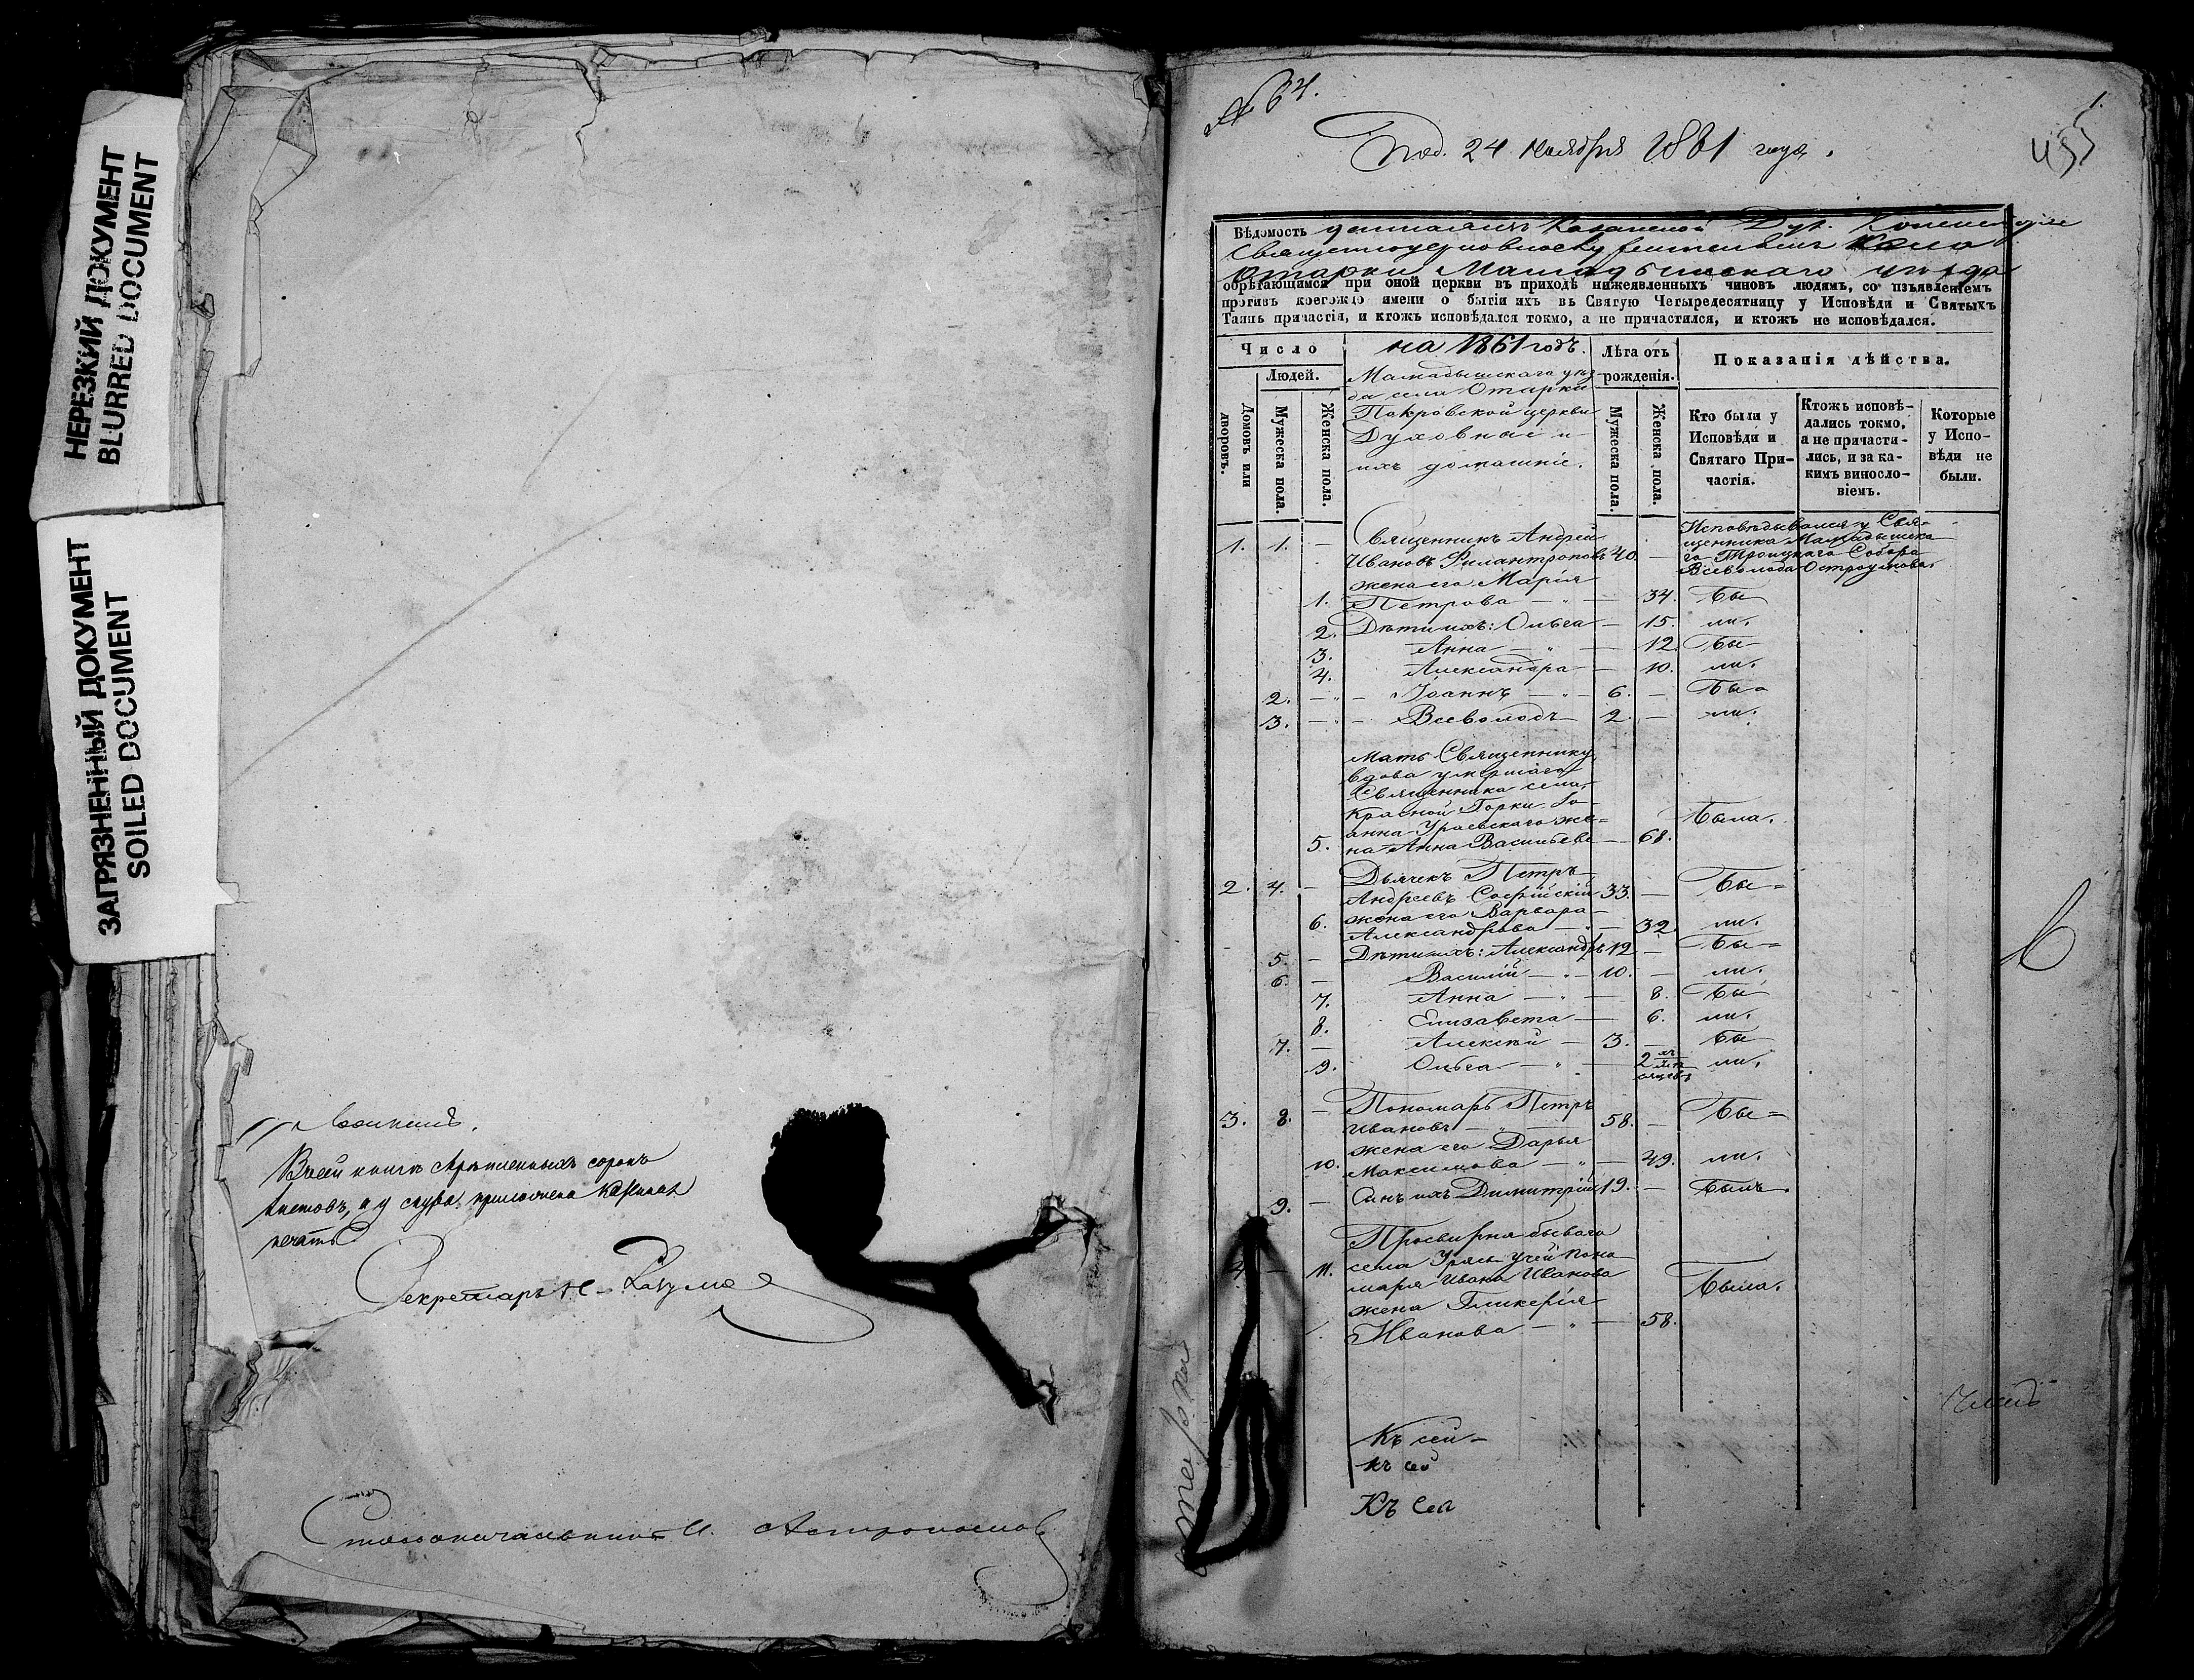 НЕРЕЗКИЙ ДОКУМЕНТ
BLURRED DOCUMENT
ЗАГРЯЗНЕННЫЙ ДОКУМЕНТ
SOILED DOCUMENT
Всей книгѣ скрѣпленныхъ сорокъ
листовъ, а у снура приложена казенная
печать
Секретарь Н.
Столоначальникъ И.
№ 64.
Под. 24 Ноября 1861 года.
1.
Вѣдомость Казанской Дух. Консисторіи
Отарки Мамадышскаго уѣзда
обрѣтающимся при оной церкви въ приходѣ нижеявленныхъ чиновъ людямъ, со изъявленіемъ
противъ коегождо имени о бытіи ихъ въ Святую Четыредесятницу у Исповѣди и Святыхъ
Таинъ причастія, и ктожъ исповѣдался токмо, а не причастился, и ктожъ не исповѣдался.
Число
Людей.
Домовъ или дворовъ.
Мужеска пола.
Женска пола.
на 1861 годъ.
Мамадышскаго уѣз-
да села Отарки
Покровской церкви
Духовные и
ихъ домашніе.
Лѣта отъ рожденія.
Мужеска пола.
Женска пола.
Показанія дѣйства.
Кто были у Исповѣди и Святаго Причастія.
Ктожъ исповѣ-
дались токмо,
а не причасти-
лись, и за ка-
кимъ винosло-
віемъ.
Которые
у Испо-
вѣди не
были.
1. 1. — Священникъ Андрей
Ивановъ Филантроповъ 40. —
Исповѣдывался у Свя-
щенника Мамадышска-
го Троицкаго Собора
Всеволода Остроумова.
жена его Марія
1. Петрова — 34. Бы-
2. Дѣти ихъ: Ольга — 15. ли.
3. Анна — 12. Бы-
4. Александра — 10. ли.
2. — Іоаннъ — 6. — Бы-
3. — Всеволодъ — 2. — ли.
Мать Священнику
вдова умершаго
Священника села
Красной Горки Іо-
анна Ураевскаго же-
5. на Анна Васильева — 68. Была.
2. 4. — Дьячекъ Петръ
Андреевъ Софійскій 33. — Бы-
жена его Варвара
6. Александрова — 32. ли.
5. — Дѣти ихъ: Александръ 12 — Бы-
6. — Василій — 10. — ли.
7. Анна — 8. Бы-
8. Елизавета — 6. ли.
7. — Алексѣй — 3. — Бы-
9. Ольга — 2 ли.
3. 8. — Пономарь Петръ
Ивановъ — 58. — Бы-
жена его Дарья
10. Максимова — 49. ли.
9. — Сынъ ихъ Димитрій 19. — Былъ.
Просвирня бывшаго
4. — 11. села Урясь Учей поно-
маря Ивана Иванова
жена Гликерія Была.
Иванова — 58.
Къ сей
къ сей
Къ сей